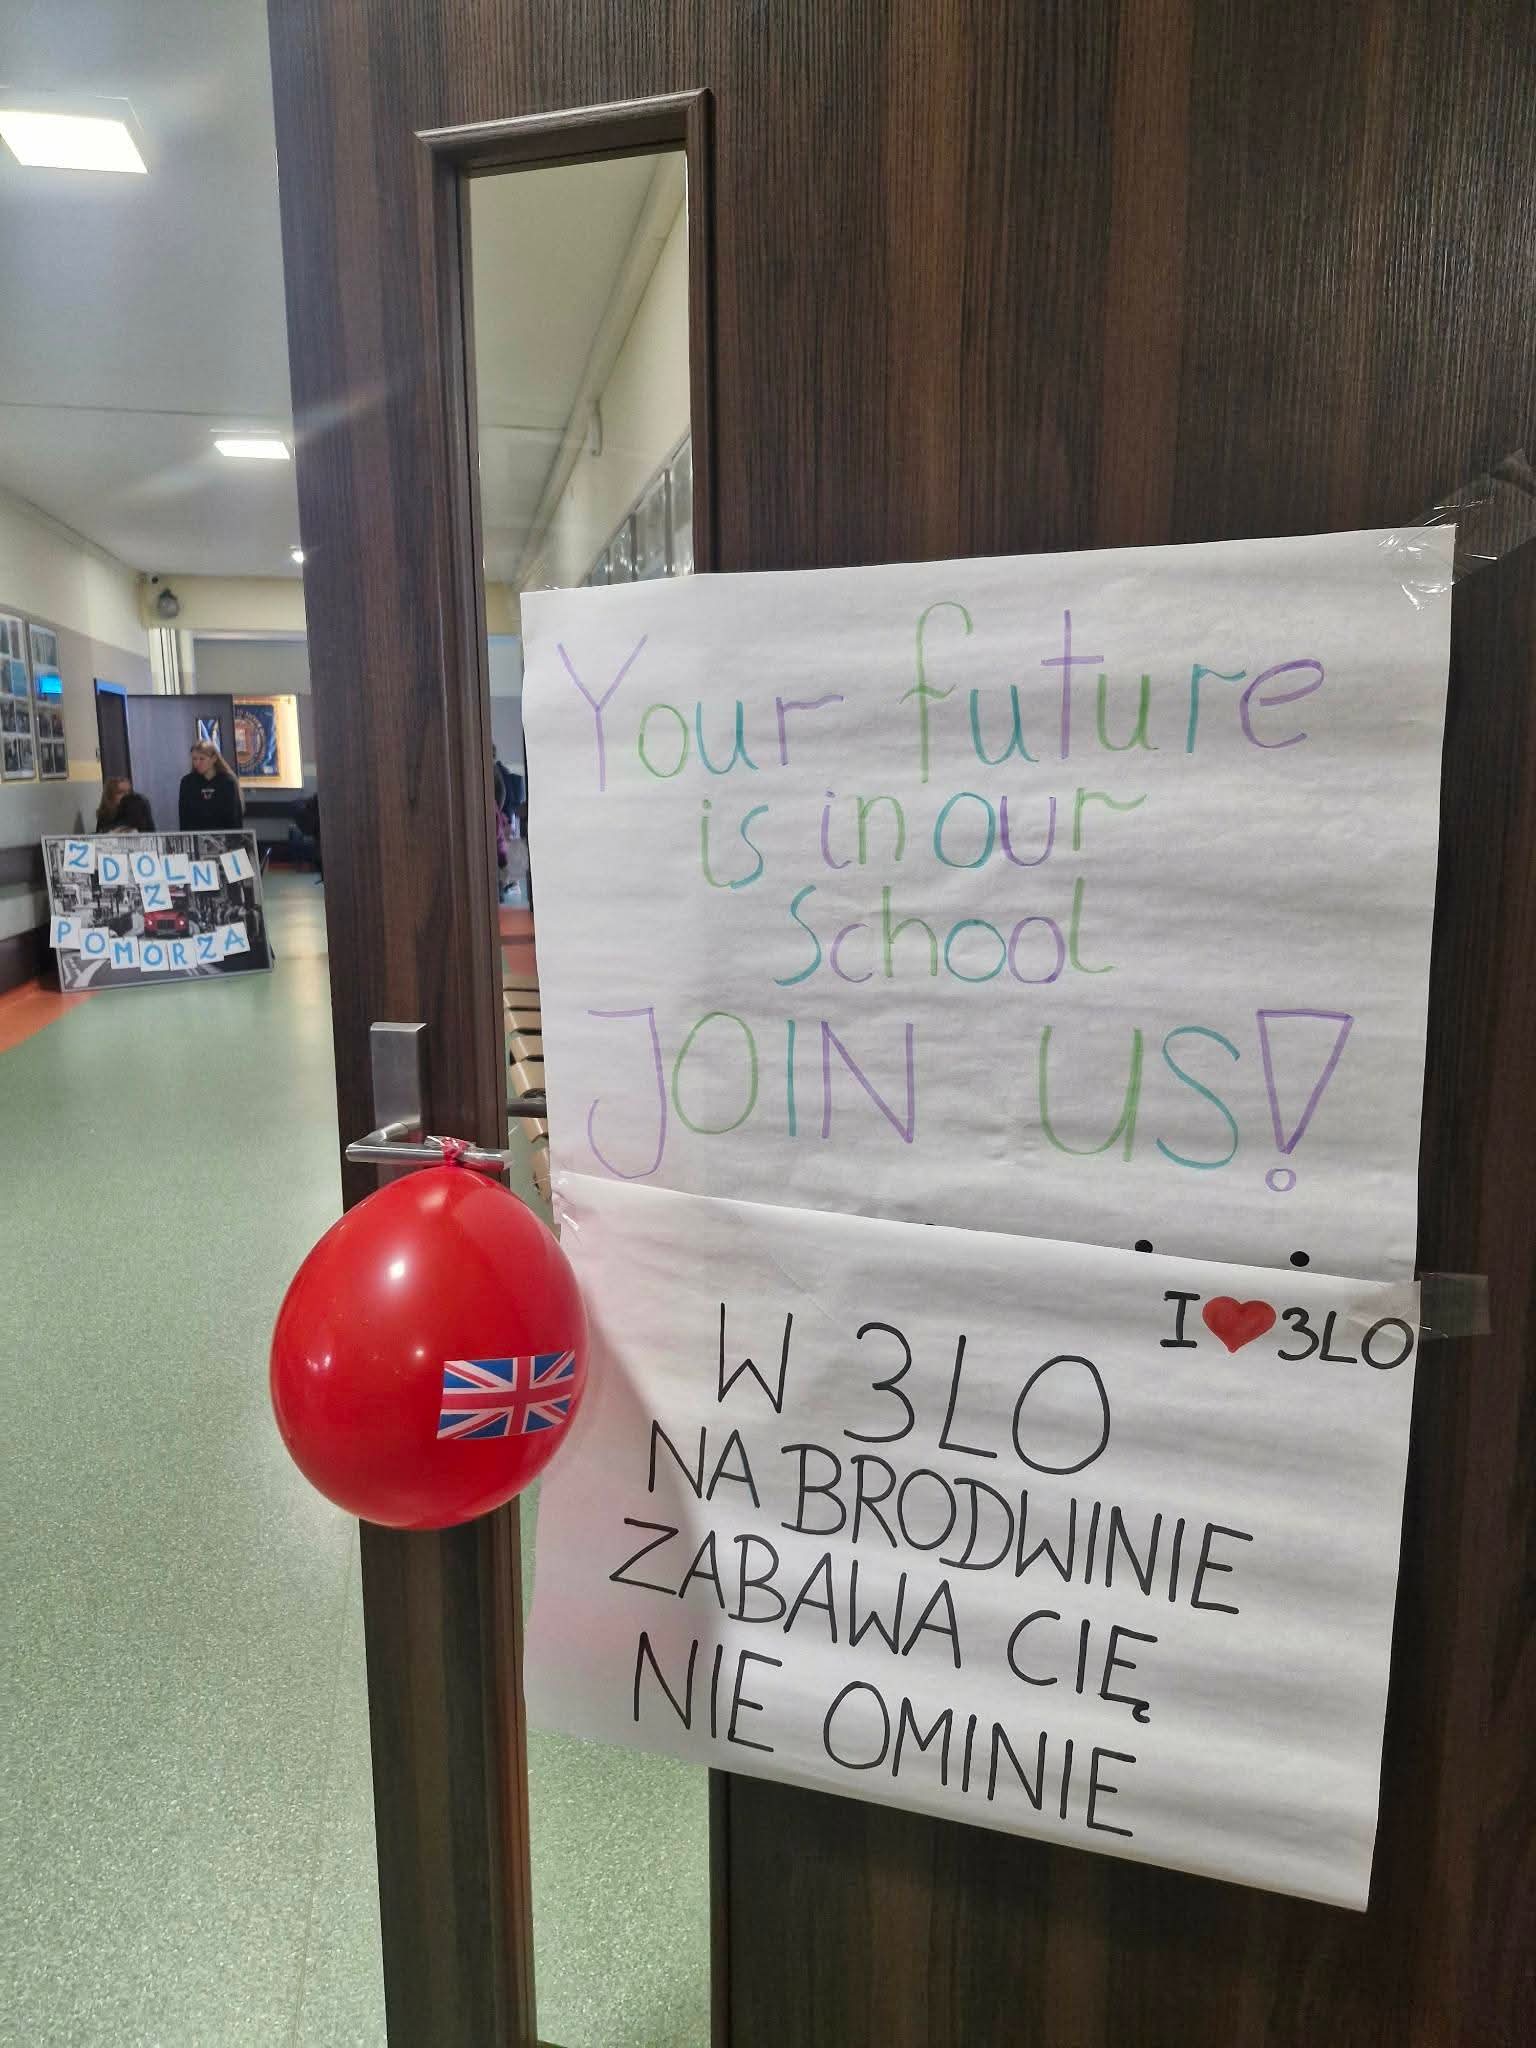 Your future
is in our
School
JOIN US!
I ❤ 3LO
W 3LO
NA BRODWINIE
ZABAWA CIĘ
NIE OMINIE
ZDOLNI
Z
POMORZA